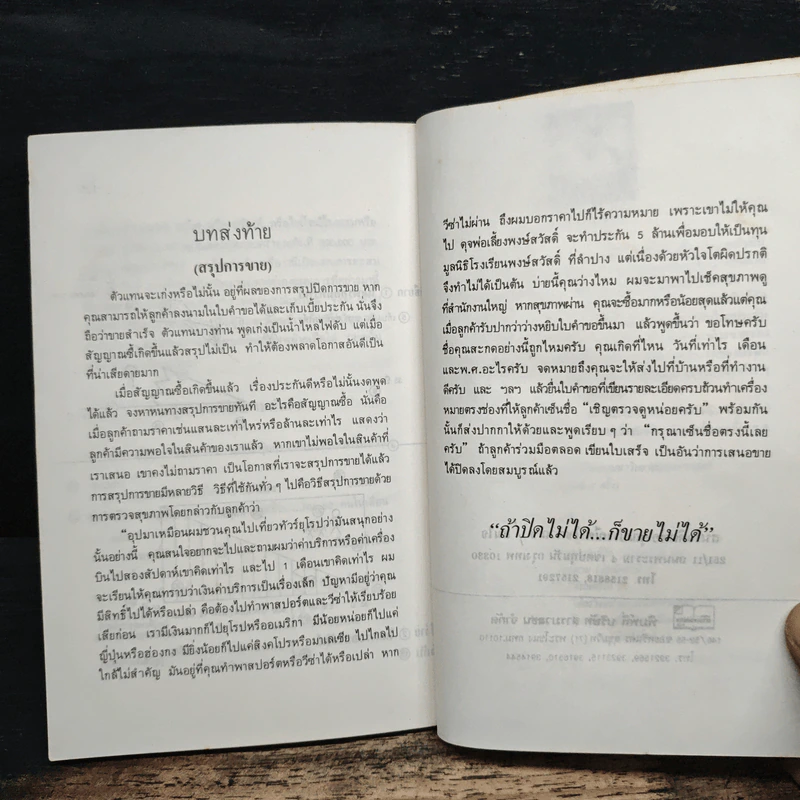 บทส่งท้าย
(สรุปการขาย)
ตัวแทนจะเก่งหรือไม่นั้น อยู่ที่ผลของการสรุปปิดการขาย หาก
คุณสามารถให้ลูกค้าลงนามในใบคำขอได้และเก็บเบี้ยประกัน นั่นจึง
ถือว่าขายสำเร็จ ตัวแทนบางท่าน พูดเก่งเป็นน้ำไหลไฟดับ แต่เมื่อ
สัญญาณซื้อเกิดขึ้นแล้วสรุปไม่เป็น ทำให้ต้องพลาดโอกาสอันดีเป็น
ที่น่าเสียดายมาก
เมื่อสัญญาณซื้อเกิดขึ้นแล้ว เรื่องประกันดีหรือไม่นั้นงดพูด
ได้แล้ว จงหาหนทางสรุปการขายทันที อะไรคือสัญญาณซื้อ นั่นคือ
เมื่อลูกค้าถามราคาเช่นแสนละเท่าไหร่หรือล้านละเท่าไร แสดงว่า
ลูกค้ามีความพอใจในสินค้าของเราแล้ว หากเขาไม่พอใจในสินค้าที่
เราเสนอ เขาคงไม่ถามราคา เป็นโอกาสที่เราจะสรุปการขายได้แล้ว
การสรุปการขายมีหลายวิธี วิธีที่ใช้กันทั่วๆ ไปคือวิธีสรุปการขายด้วย
การตรวจสุขภาพโดยกล่าวกับลูกค้าว่า
“อุปมาเหมือนผมชวนคุณไปเที่ยวทัวร์ยุโรปว่ามันสนุกอย่าง
นั้นอย่างนี้ คุณสนใจอยากจะไปและถามผมว่าค่าบริการหรือค่าเครื่อง
บินไปสองสัปดาห์เขาคิดเท่าไร และไป 1 เดือนเขาคิดเท่าไร ผม
จะเรียนให้คุณทราบว่าเงินค่าบริการเป็นเรื่องเล็ก ปัญหามีอยู่ว่าคุณ
มีสิทธิ์ไปได้หรือเปล่า คือต้องไปทำพาสปอร์ตและวีซ่าให้เรียบร้อย
เสียก่อน เรามีเงินมากก็ไปยุโรปหรืออเมริกา มีน้อยหน่อยก็ไปแค่
ญี่ปุ่นหรือฮ่องกง มียิ่งน้อยก็ไปแค่สิงคโปรหรือมาเลเซีย ไปไกลไป
ใกล้ไม่สำคัญ มันอยู่ที่คุณทำพาสปอร์ตหรือวีซ่าได้หรือเปล่า หาก
วีซ่าไม่ผ่าน ถึงผมบอกราคาไปก็ไร้ความหมาย เพราะเขาไม่ให้คุณ
ไป ดุจพ่อเลี้ยงพงษ์สวัสดิ์ จะทำประกัน 5 ล้านเพื่อมอบให้เป็นทุน
มูลนิธิโรงเรียนพงษ์สวัสดิ์ ที่ลำปาง แต่เนื่องด้วยหัวใจโตผิดปรกติ
จึงทำไม่ได้เป็นต้น บ่ายนี้คุณว่างไหม ผมจะมาพาไปเช็คสุขภาพดู
ที่สำนักงานใหญ่ หากสุขภาพผ่าน คุณจะซื้อมากหรือน้อยสุดแล้วแต่คุณ
เมื่อลูกค้ารับปากว่าว่างหยิบใบคำขอขึ้นมา แล้วพูดขึ้นว่า ขอโทษครับ
ชื่อคุณสะกดอย่างนี้ถูกไหมครับ คุณเกิดที่ไหน วันที่เท่าไร เดือน
และพ.ศ.อะไรครับ จดหมายถึงคุณจะให้ส่งไปที่บ้านหรือที่ทำงาน
ดีครับ และ ฯลฯ แล้วยื่นใบคำขอที่เขียนรายละเอียดครบถ้วนทำเครื่อง
หมายตรงช่องที่ให้ลูกค้าเซ็นชื่อ “เชิญตรวจดูหน่อยครับ” พร้อมกัน
นั้นก็ส่งปากกาให้ด้วยและพูดเรียบๆ ว่า “กรุณาเซ็นชื่อตรงนี้เลย
ครับ” ถ้าลูกค้าร่วมมือตลอด เขียนใบเสร็จ เป็นอันว่าการเสนอขาย
ได้ปิดลงโดยสมบูรณ์แล้ว
“ถ้าปิดไม่ได้...ก็ขายไม่ได้”